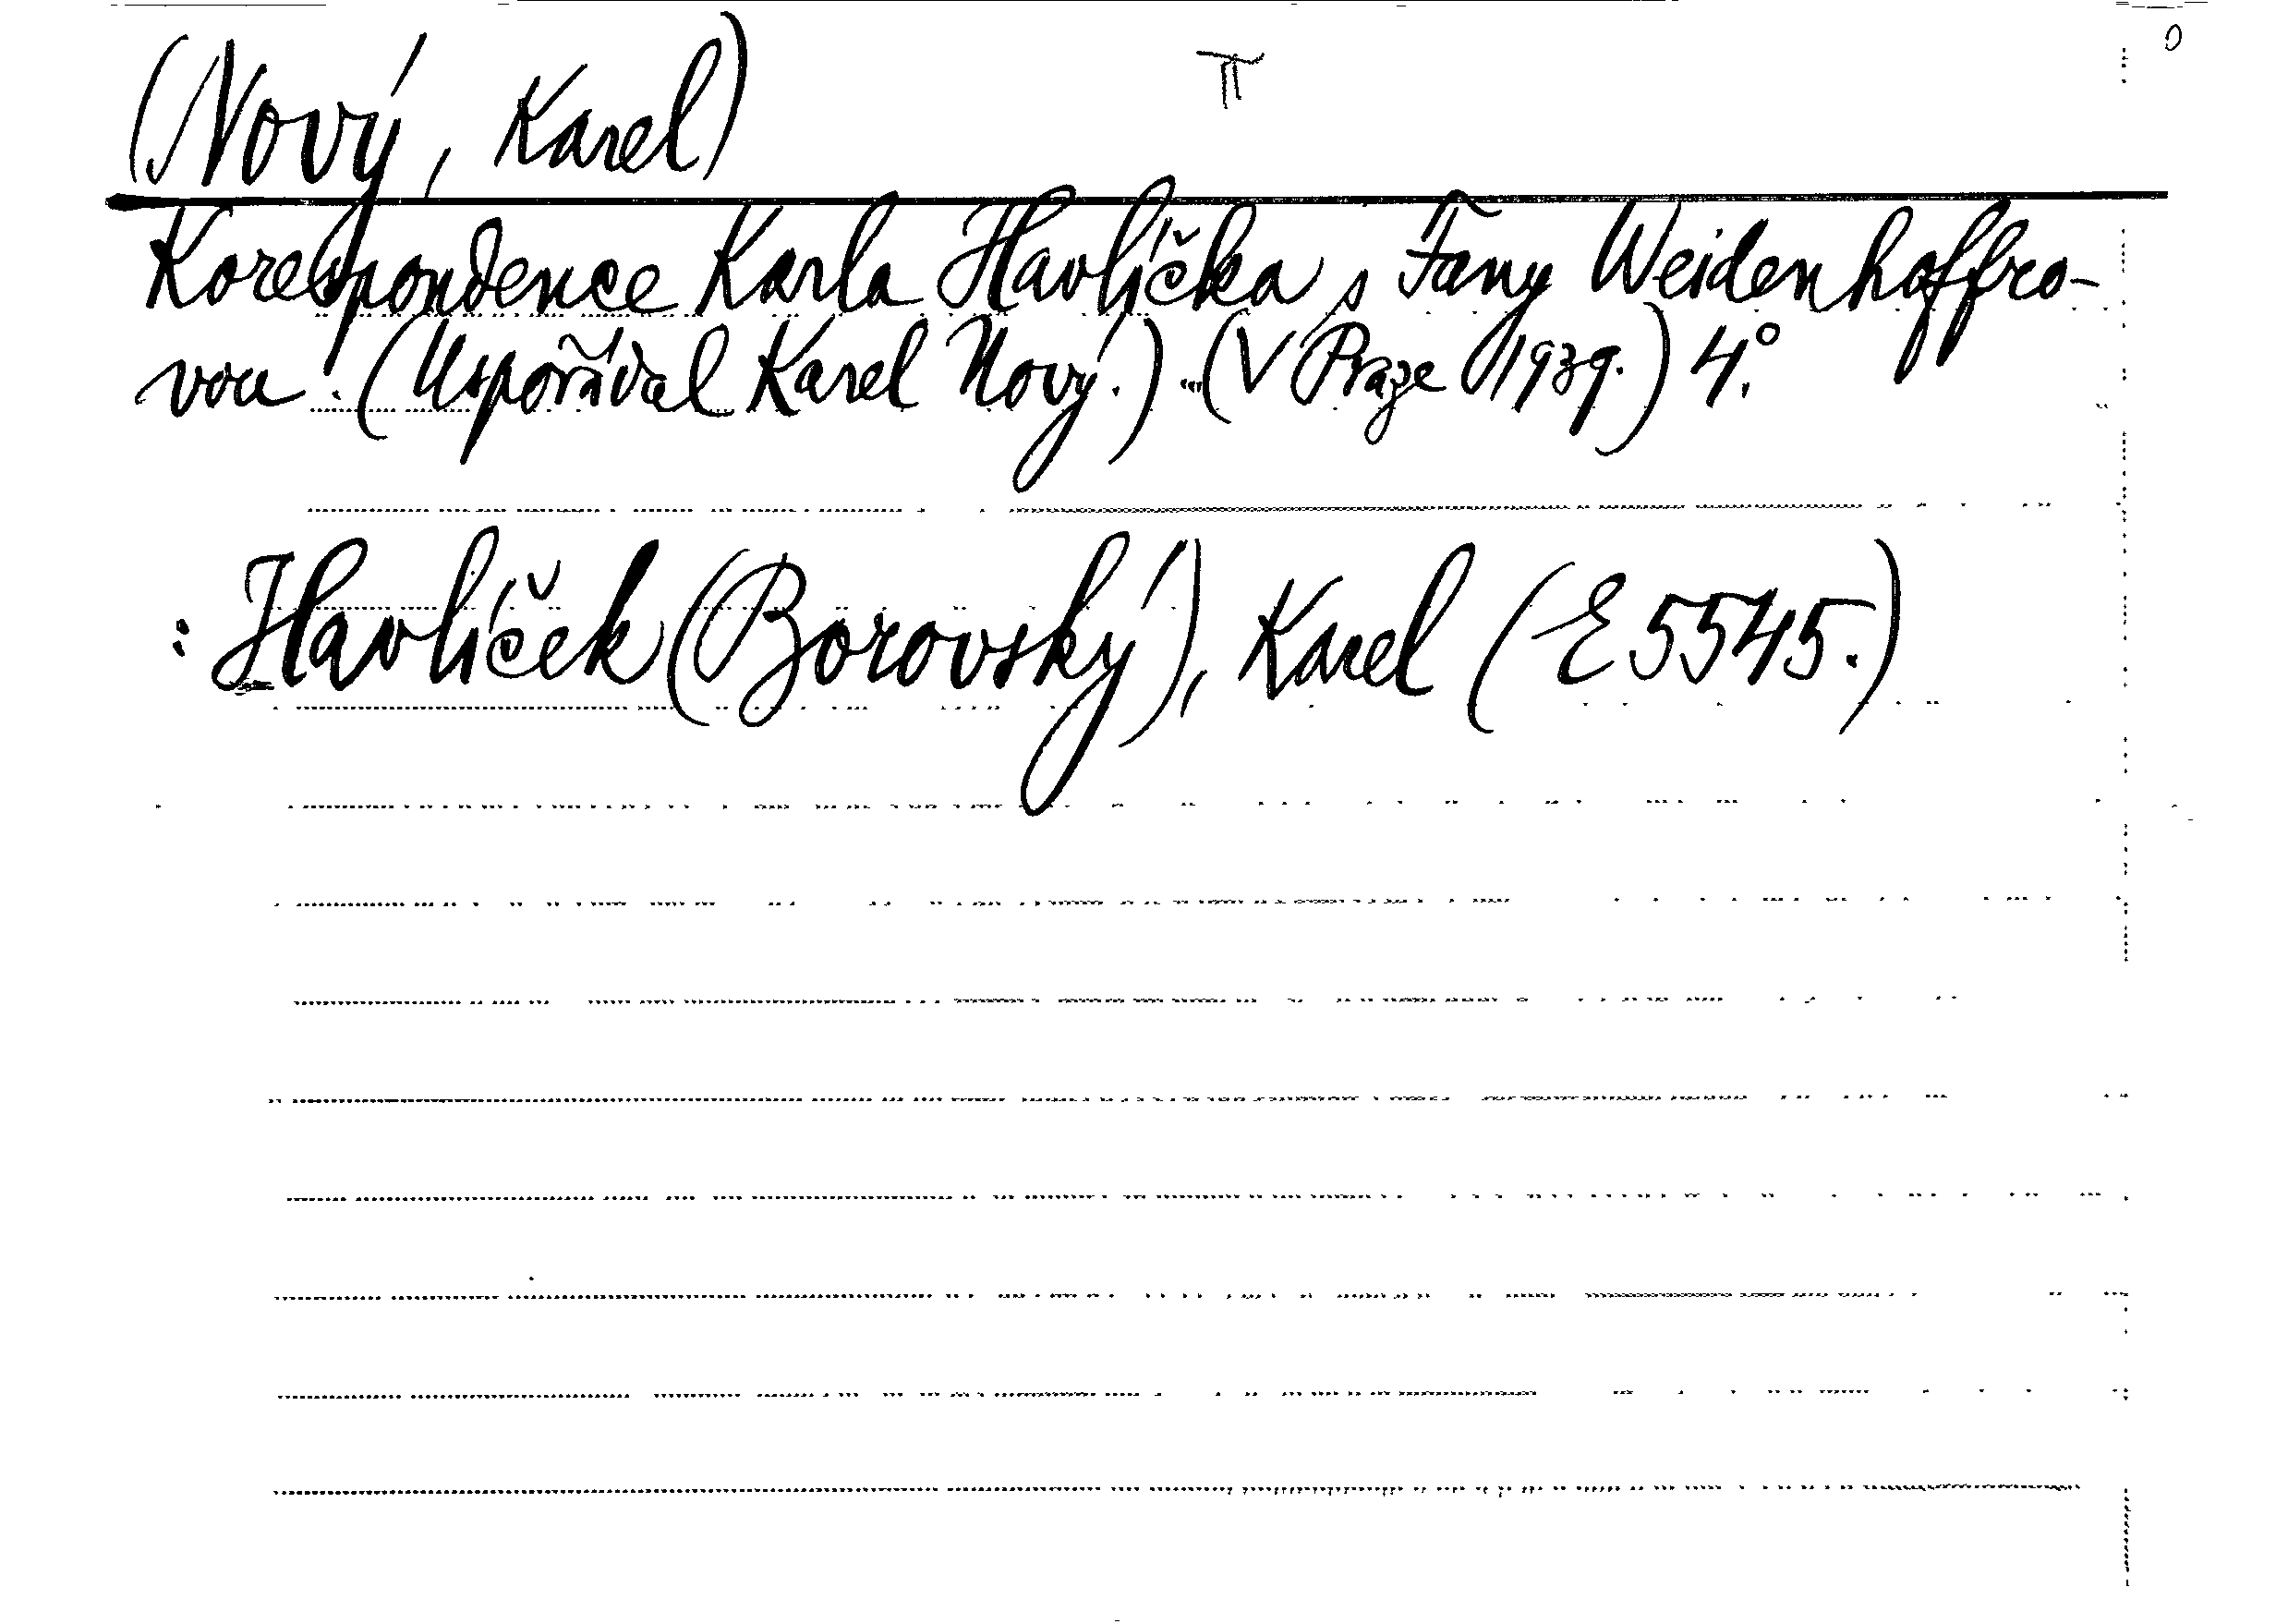 (Nový, Karel) II
Korespondence Karla Havlíčka s Fany Weidenhoffro-
vou. (Uspořádal Karel Nový.) ... (V Praze 1939.) 4°.
: Havlíček (Borovský), Karel (E 5545.)